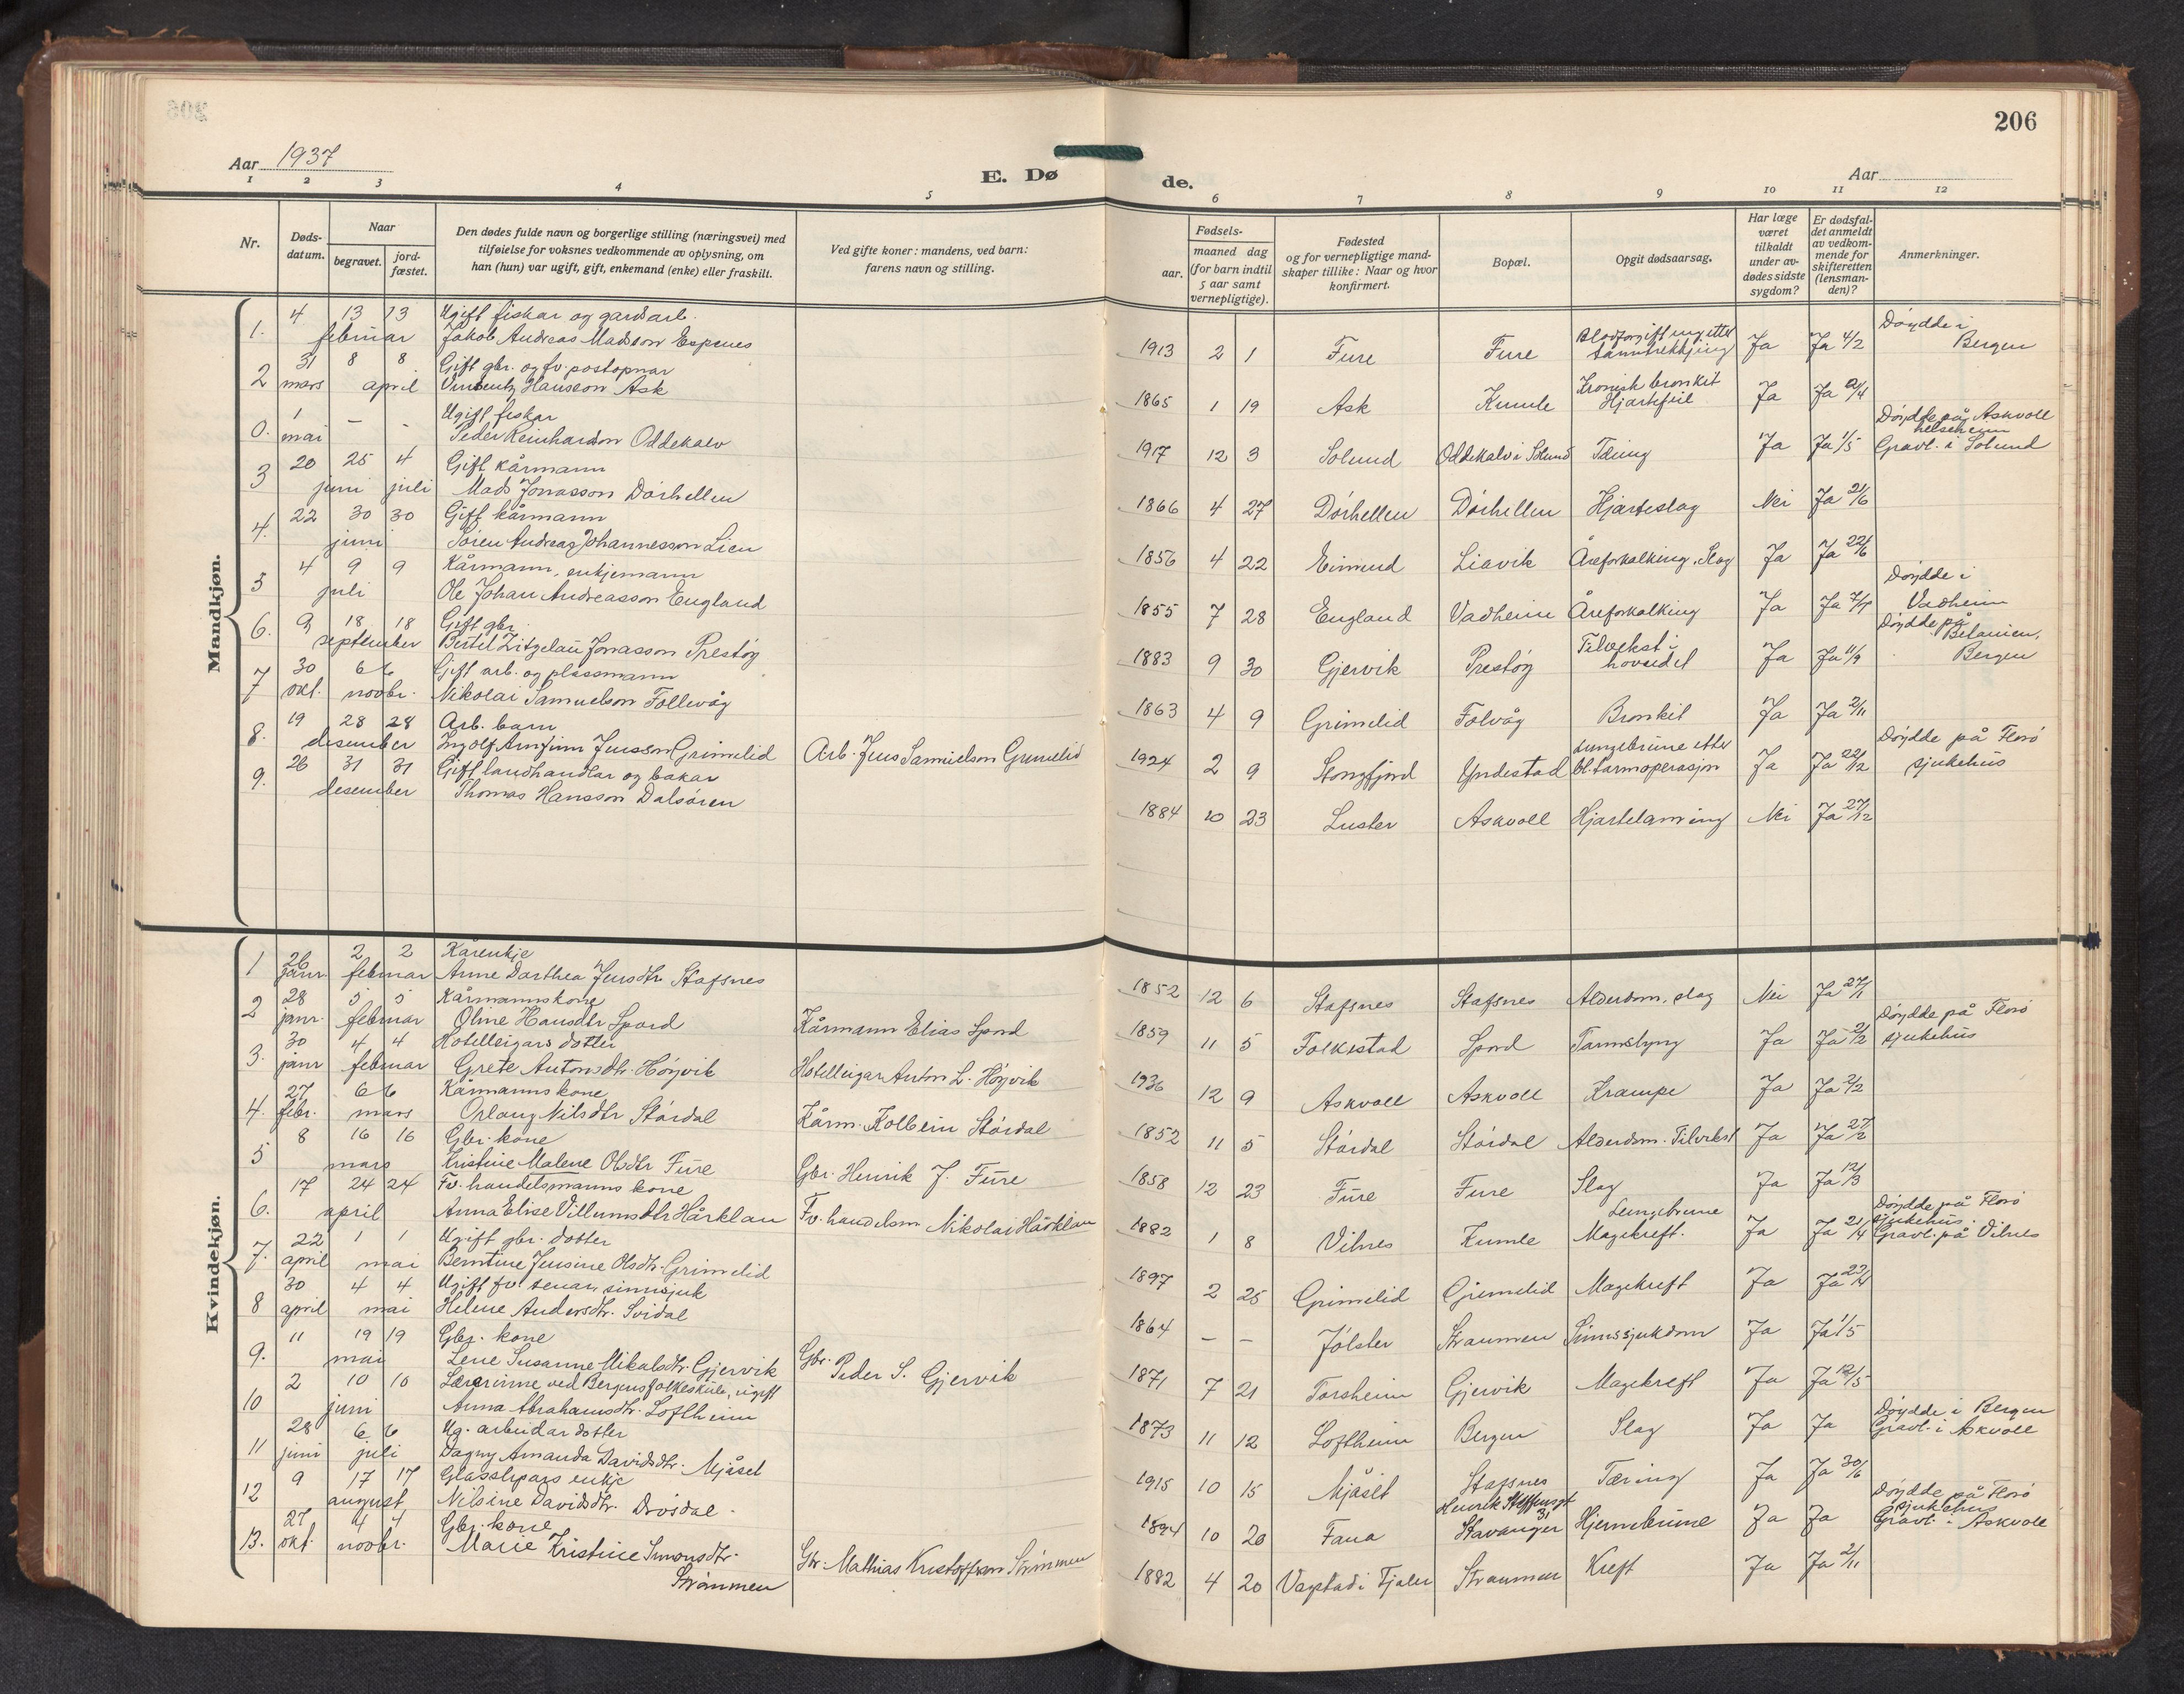 206
Aar 1937
E. Dø
de.
Aar
1 2 3 4 5 6 7 8 9 10 11 12
Nr.
Døds-
datum.
Naar
begravet.
jord-
fæstet.
Den dødes fulde navn og borgerlige stilling (næringsvei) med
tilføielse for voksnes vedkommende av oplysning, om
han (hun) var ugift, gift, enkemand (enke) eller fraskilt.
Ved gifte koner: mandens, ved barn:
farens navn og stilling.
Fødsels-
aar.
maaned dag
(for barn indtil
5 aar samt
vernepligtige).
Fødested
og for vernepligtige mand-
skaper tillike: Naar og hvor
konfirmert.
Bopæl.
Opgit dødsaarsag.
Har læge
været
tilkaldt
under av-
dødes sidste
sygdom?
Er dødsfal-
det anmeldt
av vedkom-
mende for
skifteretten
(lensman-
den)?
Anmerkninger.
Mandkjøn.
1. 4 13 13 februar Ugift fiskar og gardsarb.
Jakob Andreas Madsson Espenes 1913 2 1 Fure Fure Blodforgiftning etter
tanntrekkjing Ja Ja 4/2 Døydde i
Bergen
2 31 mars 8 8 april Gift gbr. og fv. postopnar
Hansson Ask 1865 1 19 Ask Kumle Kronisk bronkit
Hjartefeil Ja Ja
0. 1 mai - - Ugift fiskar
Peder Reinhardson Oddekalv 1917 12 3 Solund Oddekalv i Solund Tæring Ja Ja 1/5 Døydde på Askvoll
helseheim
Gravl. i Solund
3 20 25 4 juni juli Gift kårmann
Mads Jonasson Dørhellen 1866 4 27 Dørhellen Dørhellen Hjarteslag Nei Ja 21/6
4. 22 30 30 juni Gift kårmann
Søren Andreas Johannesson Lien 1856 4 22 Eimind Liavik Åreforkalking, Slag Ja Ja 22/6
5 4 9 9 juli Kårmann, enkjemann
Ole Johan Andreasson England 1855 7 28 England Vadheim Åreforkalking Ja Ja 7/7 Døydde i
Vadheim
6. 9 18 18 september Gift gbr.
Bertel Zitzelau Jonasson Prestøy 1883 9 30 Gjervik Prestøy Tilvekst i
hovudet Ja Ja 11/9 Døydde på
Betanien,
Bergen
7 30 okt. 6 6 novbr. Gift arb. og plassmann
Nikolai Samuelson Follevåg 1863 4 9 Grimelid Folvåg Bronkit Ja Ja 2/11
8. 19 28 28 desember Arb. barn
Ingolf Arnfinn Jensson Grimelid Arb. Jens Samuelson Grimelid 1924 2 9 Stongfjord Yndestad Lungebrune etter
bl.tarmoperasjon Ja Ja 22/12 Døydde på Florø
sjukehus
9. 26 31 31 desember Gift landhandlar og bakar
Thomas Hansson Dalsøren 1884 10 23 Luster Askvoll Hjartelaming Nei Ja 27/12
Kvindekjøn.
1 26 janr. 2 2 februar Kårenkje
Anne Darthea Jensdtr Stafsnes 1852 12 6 Stafsnes Stafsnes Alderdom, slag Nei Ja 27/1
2 28 janr. 5 5 februar Kårmannskone
Oline Hansdtr Spord Kårmann Elias Spord 1859 11 5 Folkestad Spord Tarmslyng Ja Ja 2/2 Døydde på Florø
sjukehus
3. 30 janr 4 4 februar Hotelleigars dotter
Grete Antonsdtr. Høyvik Hotelleigar Anton L. Høyvik 1936 12 9 Askvoll Askvoll Krampe Ja Ja 2/2
4. 27 febr. 6 6 mars Kårmannskone
Orlaug Nilsdtr Stórdal Kårm. Kolbein Stórdal 1852 11 5 Stórdal Stórdal Alderdom. Tilvekst Ja Ja 27/2
5 8 16 16 mars Gbr. kone
Kristine Malene Olsdtr Fure Gbr. Henrik J. Fure 1858 12 23 Fure Fure Slag Ja Ja 12/3
6. 17 24 24 april Fv. handelsmanns kone
Anna Elise Villumsdtr Hårklau Fv. handelsm Nikolai Hårklau 1882 1 8 Vilnes Kumle Lungebrune
Magekreft. Ja Ja 21/4 Døydde på Florø
sjukehus.
Gravl. på Vilnes
7. 22 april 1 1 mai Ugift gbr. dotter
Berntine Jensine Olsdtr. Grimelid 1897 2 25 Grimelid Grimelid Magekreft Ja Ja 23/4
8 30 april 4 4 mai Ugift fv. tenar, sinnsjuk
Helene Andersdtr. Svidal 1864 - - Jølster Straumen Sinnssjukdom Ja Ja 1/5
9. 11 19 19 mai Gbr. kone
Lene Susanne Mikalsdtr. Gjervik Gbr. Peder S. Gjervik 1871 7 21 Torsheim Gjervik Magekreft Ja Ja 12/5
10 2 10 10 juni Lærerinne ved Bergens folkeskule, ugift
Anna Abrahamsdtr. Loftheim 1873 11 12 Loftheim Bergen Slag Ja Ja Døydde i Bergen
Gravl. i Askvoll
11 28 juni 6 6 juli Ug. arbeidar dotter
Dagny Amanda Davidsdtr. Mjåset 1915 10 15 Mjåset Stafsnes Tæring Ja Ja 30/6
12 9 17 17 august Glasslipars enkje
Nilsine Davidsdtr. Drøsdal 1894 10 20 Fana Henrik Steffensgt
31
Stavanger Hjernebrune Ja Ja Døydde på Florø
sjukehus
Gravl. i Askvoll
13. 27 okt. 4 4 novbr. Gbr. kone
Marie Kristine Simonsdtr.
Straumen Gbr. Mathias Kristoffersen Straumen 1882 4 20 Vagstad i Fjaler Straumen Kreft Ja Ja 2/11